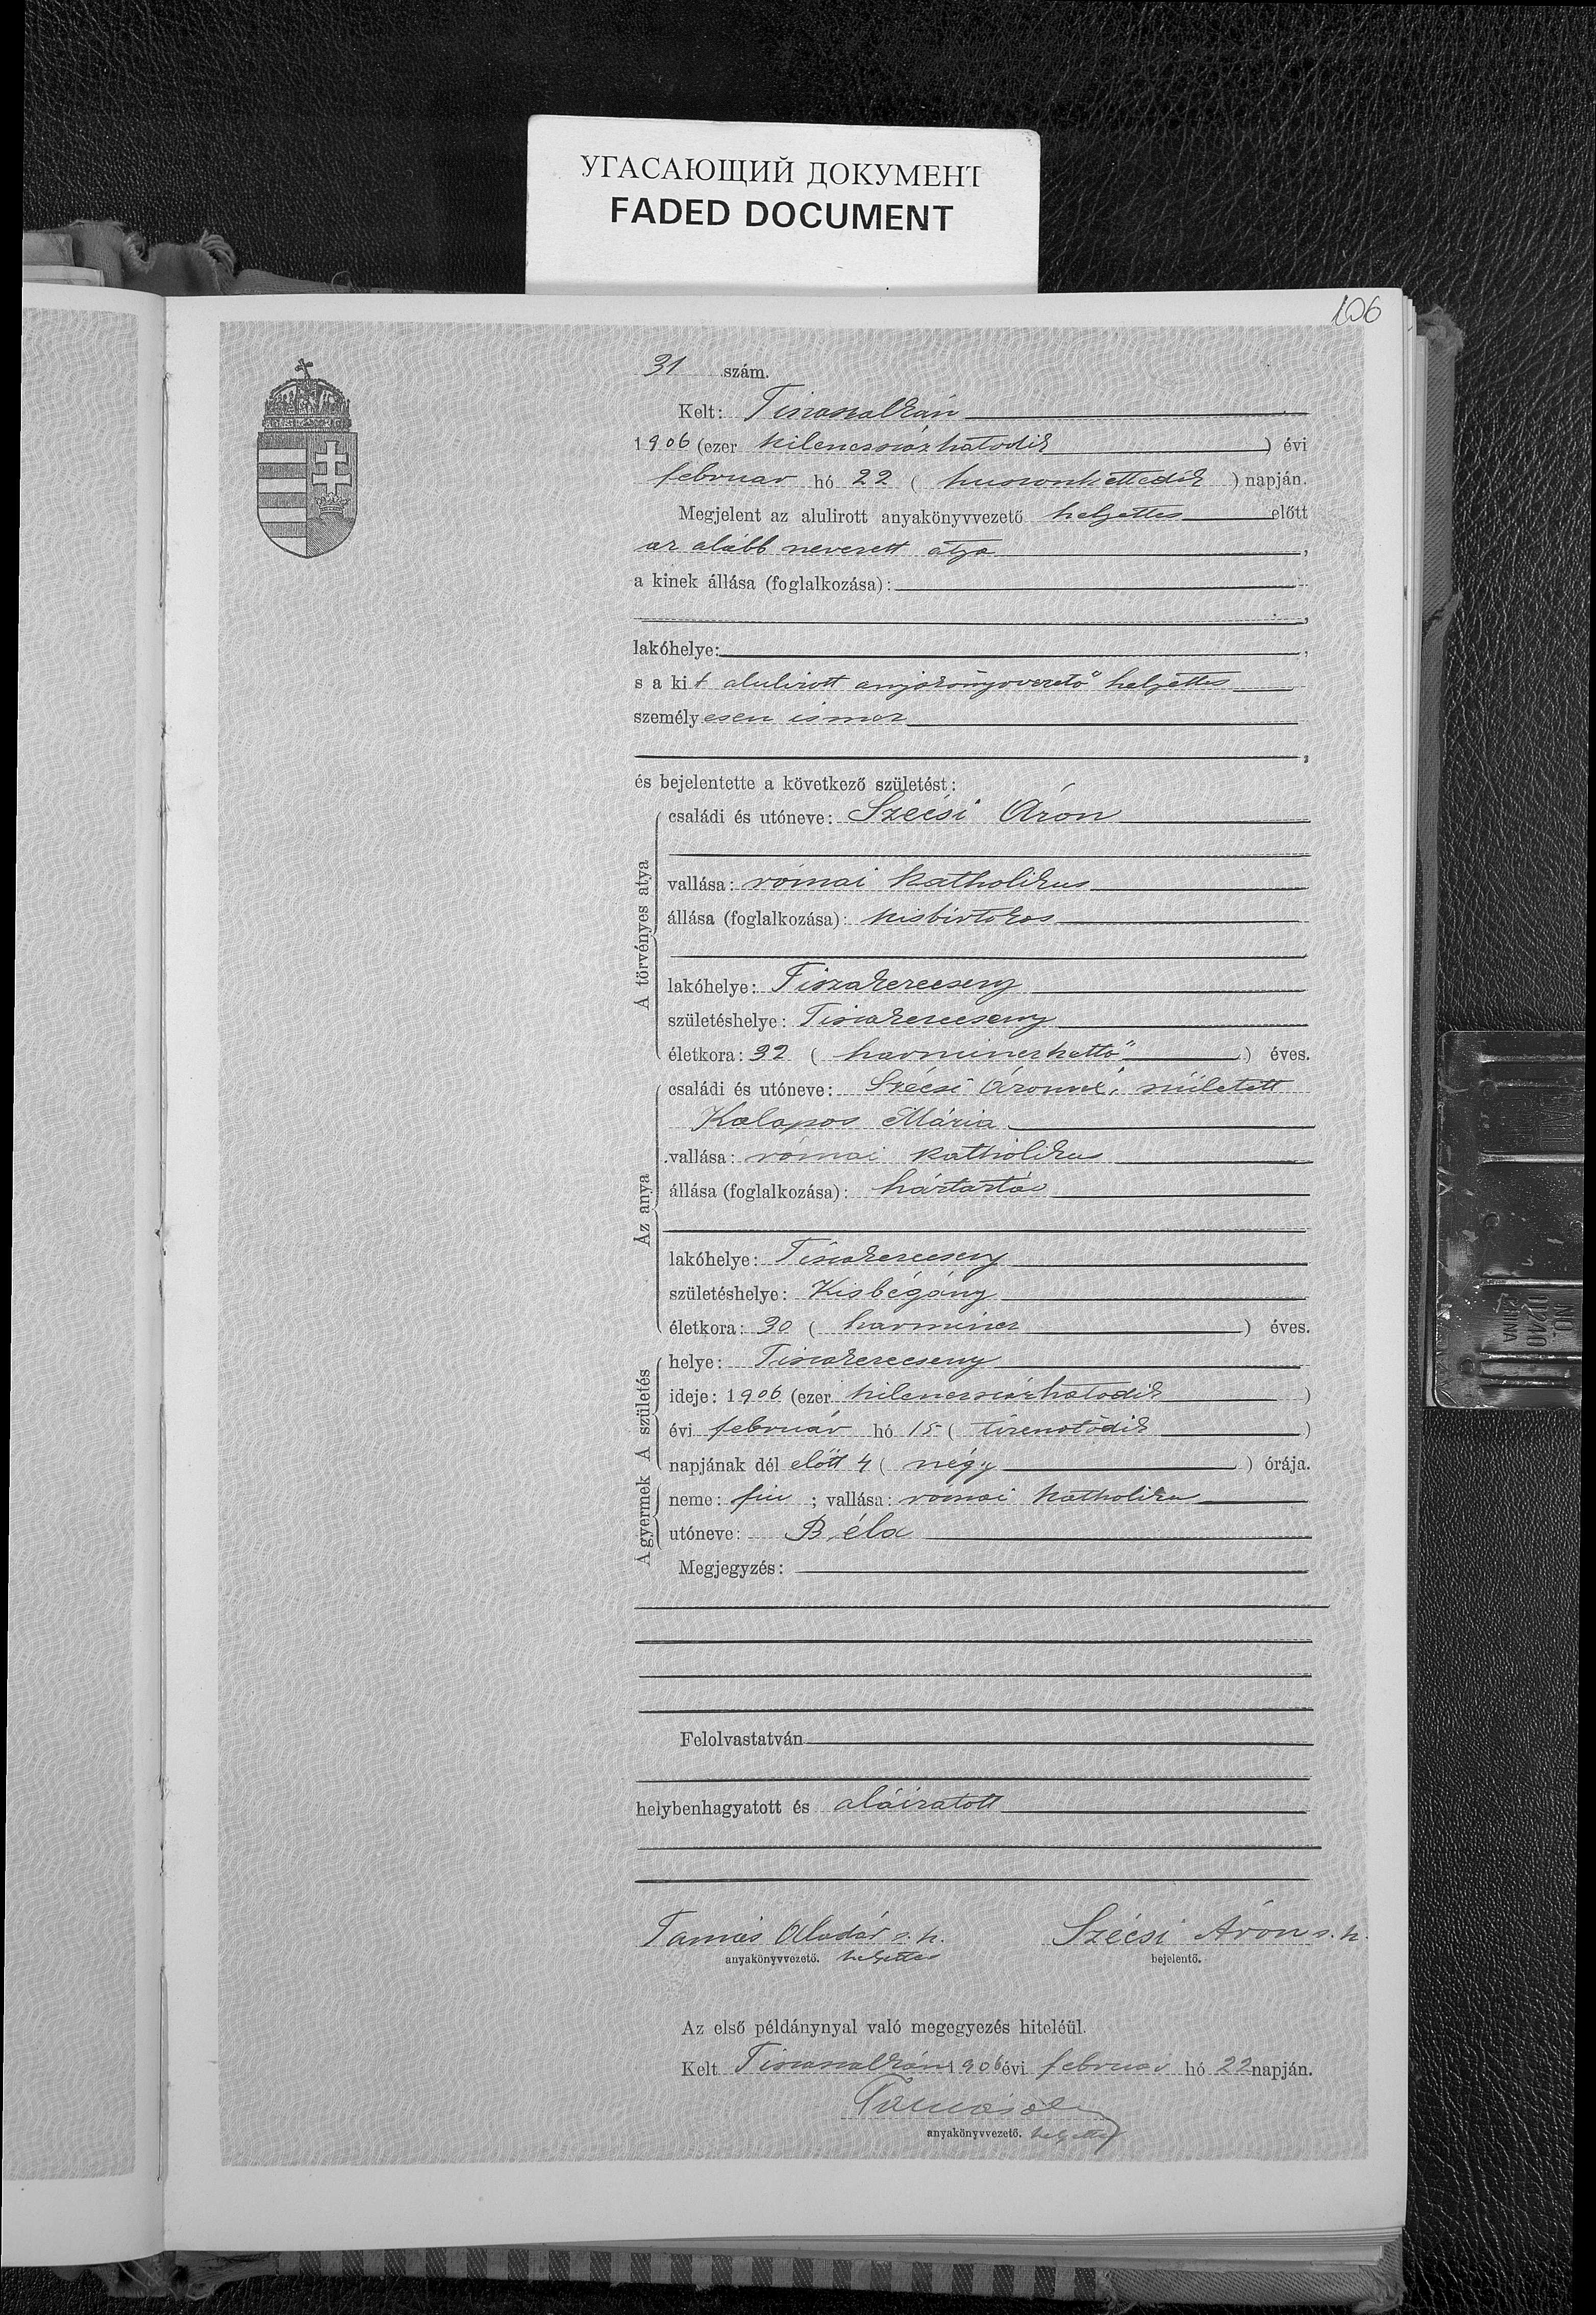 УГАСАЮЩИЙ ДОКУМЕНТ
FADED DOCUMENT
106
31 szám.
Kelt: Tiszaszalkán
1906 (ezer kilencszázhatodik) évi
február hó 22 (huszonkettedik) napján.
Megjelent az alulirott anyakönyvvezető helyettes előtt
az alább nevezett atya,
a kinek állása (foglalkozása):
lakóhelye:
s a kit alulirott anyakönyvvezető helyettes
személyesen ismer
és bejelentette a következő születést:
A törvényes atya
családi és utóneve: Szécsi Áron
vallása: római katholikus
állása (foglalkozása): kisbirtokos
lakóhelye: Tiszakerecseny
születéshelye: Tiszakerecseny
életkora: 32 (harminczkettő) éves.
Az anya
családi és utóneve: Szécsi Áronné, született
Kalapos Mária
vallása: római katholikus
állása (foglalkozása): háztartás
lakóhelye: Tiszakerecseny
születéshelye: Kisbégány
életkora: 30 (harmincz) éves.
A születés
helye: Tiszakerecseny
ideje: 1906 (ezer kilencszázhatodik)
évi február hó 15 (tizenötödik)
napjának dél előtt 4 (négy) órája.
A gyermek
neme: fiu; vallása: római katholiku
utóneve: Béla
Megjegyzés:
Felolvastatván
helybenhagyatott és aláiratott
Tamás Aladár s. k. Szécsi Áron s. k.
anyakönyvvezető. helyettes bejelentő.
Az első példánynyal való megegyezés hiteléül.
Kelt Tiszaszalkán 1906 évi február hó 22 napján.
anyakönyvvezető. helyettes